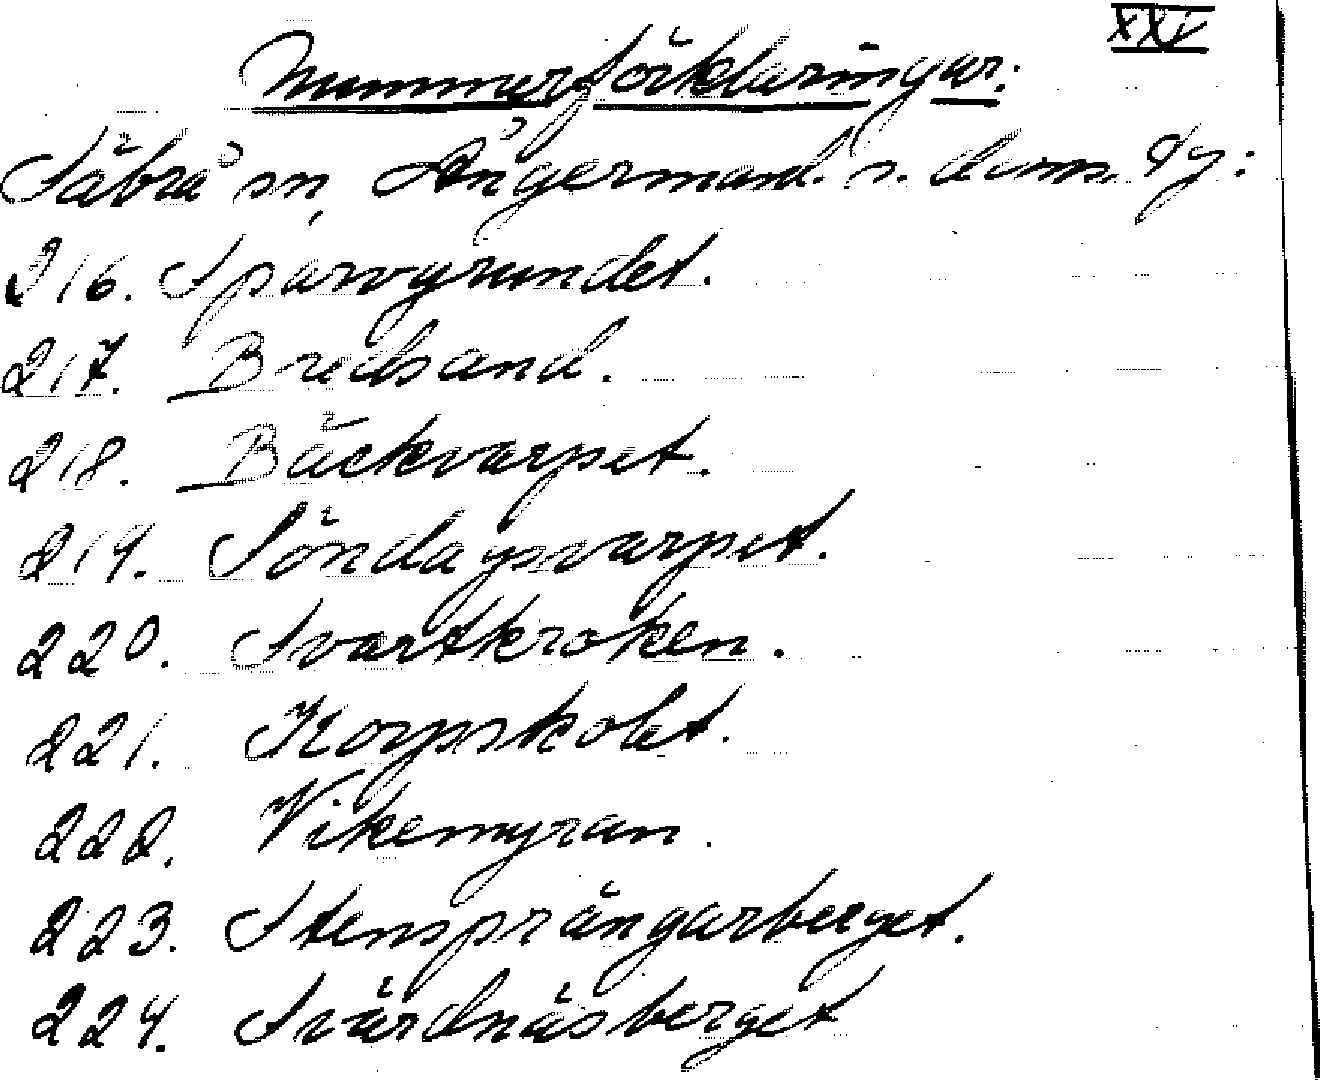 XXV
Nummerförklaringar:
Säbrå sn, Ångermanl. s. doms. tg:
216. Sparvgrundet.
217. Bredsand.
218. Bäckvarpet.
219. Söndagsvarpet.
220. Svartkroken.
221. Korpskolet.
222. Vikemyran.
223. Stensprängarberget.
224. Svärdnäsberget